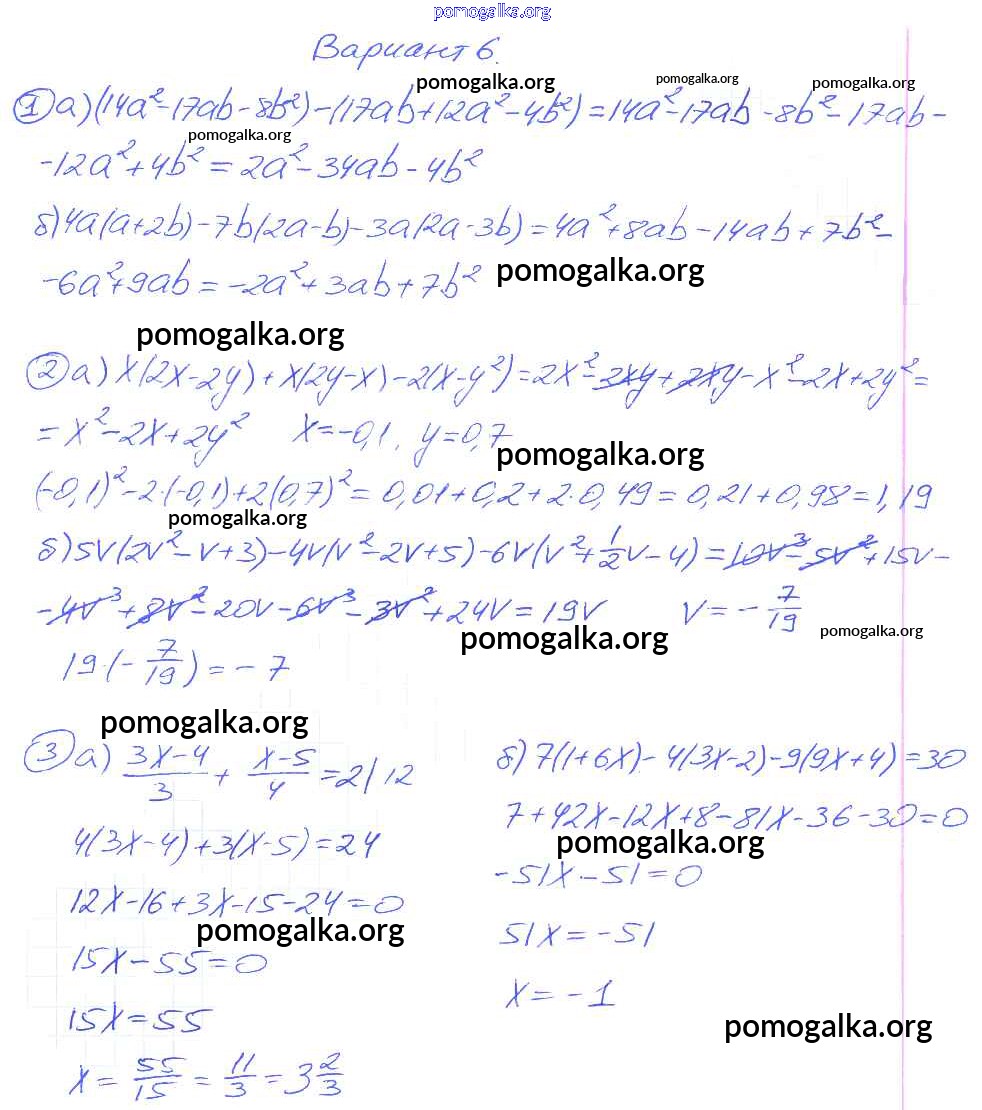 pomogalka.org
Вариант 6.
pomogalka.org pomogalka.org pomogalka.org
① а) (14a² - 17ab - 8b²) - (17ab + 12a² - 4b²) = 14a² - 17ab - 8b² - 17ab -
pomogalka.org
- 12a² + 4b² = 2a² - 34ab - 4b²
б) 4a(a + 2b) - 7b(2a - b) - 3a(2a - 3b) = 4a² + 8ab - 14ab + 7b² -
- 6a² + 9ab = -2a² + 3ab + 7b²
pomogalka.org
pomogalka.org
② а) x(2x - 2y) + x(2y - x) - 2(x - y²) = 2x² - 2xy + 2xy - x² - 2x + 2y² =
= x² - 2x + 2y² x = -0,1, y = 0,7
pomogalka.org
(-0,1)² - 2·(-0,1) + 2(0,7)² = 0,01 + 0,2 + 2·0,49 = 0,21 + 0,98 = 1,19
pomogalka.org
б) 5v(2v² - v + 3) - 4v(v² - 2v + 5) - 6v(v² + 1/2 v - 4) = 10v³ - 5v² + 15v -
- 4v³ + 8v² - 20v - 6v³ - 3v² + 24v = 19v v = - 7/19
pomogalka.org pomogalka.org
19·(- 7/19) = - 7
pomogalka.org
③ а) (3x - 4)/3 + (x - 5)/4 = 2 | 12
4(3x - 4) + 3(x - 5) = 24
12x - 16 + 3x - 15 - 24 = 0
pomogalka.org
15x - 55 = 0
15x = 55
x = 55/15 = 11/3 = 3 2/3
б) 7(1 + 6x) - 4(3x - 2) - 9(9x + 4) = 30
7 + 42x - 12x + 8 - 81x - 36 - 30 = 0
pomogalka.org
- 51x - 51 = 0
51x = - 51
x = - 1
pomogalka.org